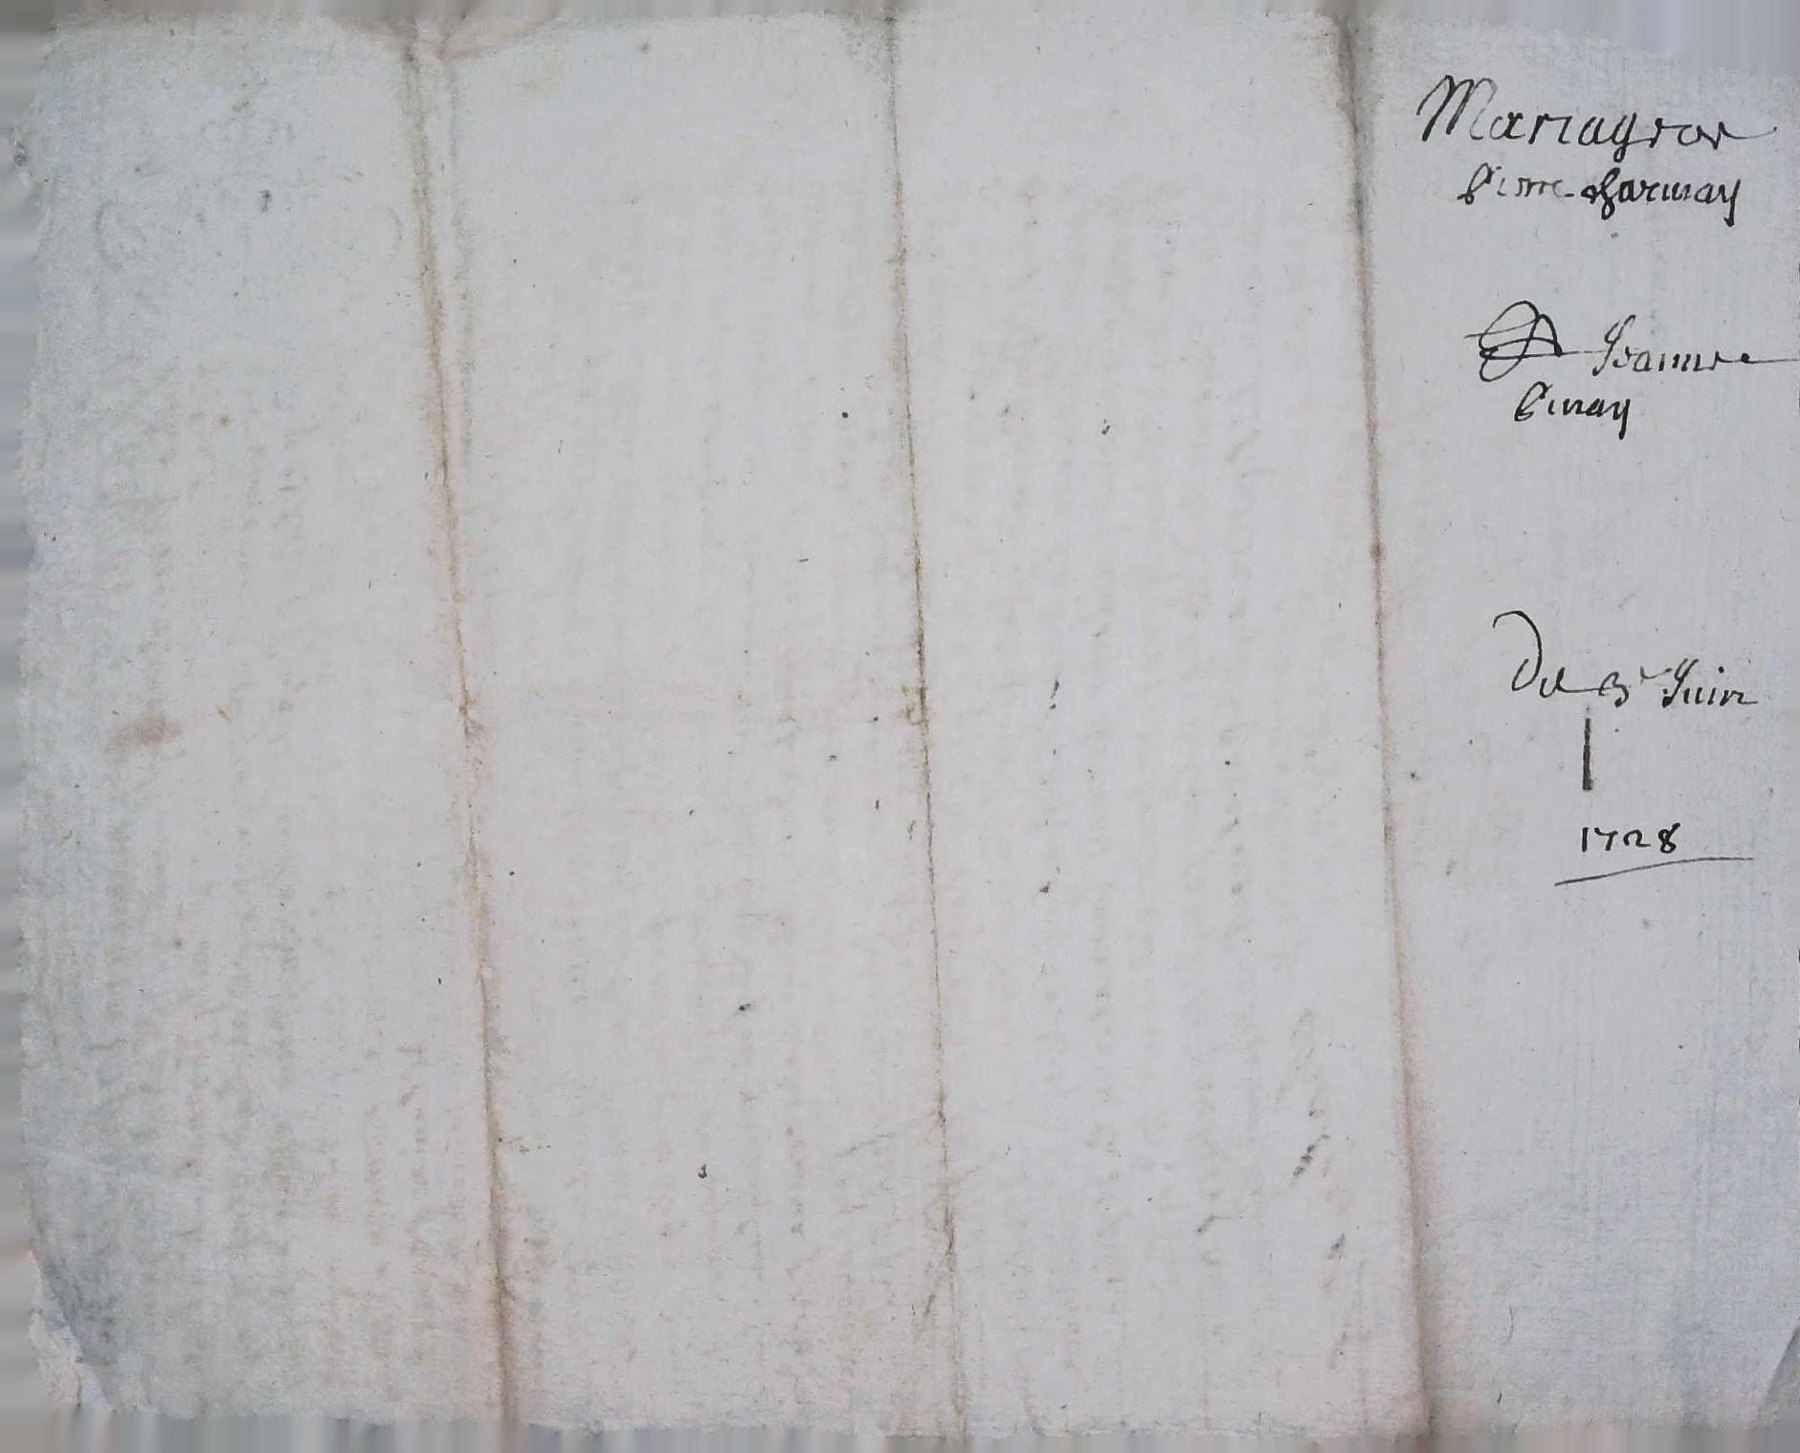 Mariage de
Pierre charnay
Et Jeanne
Pinay
Du 3e Juin
1728